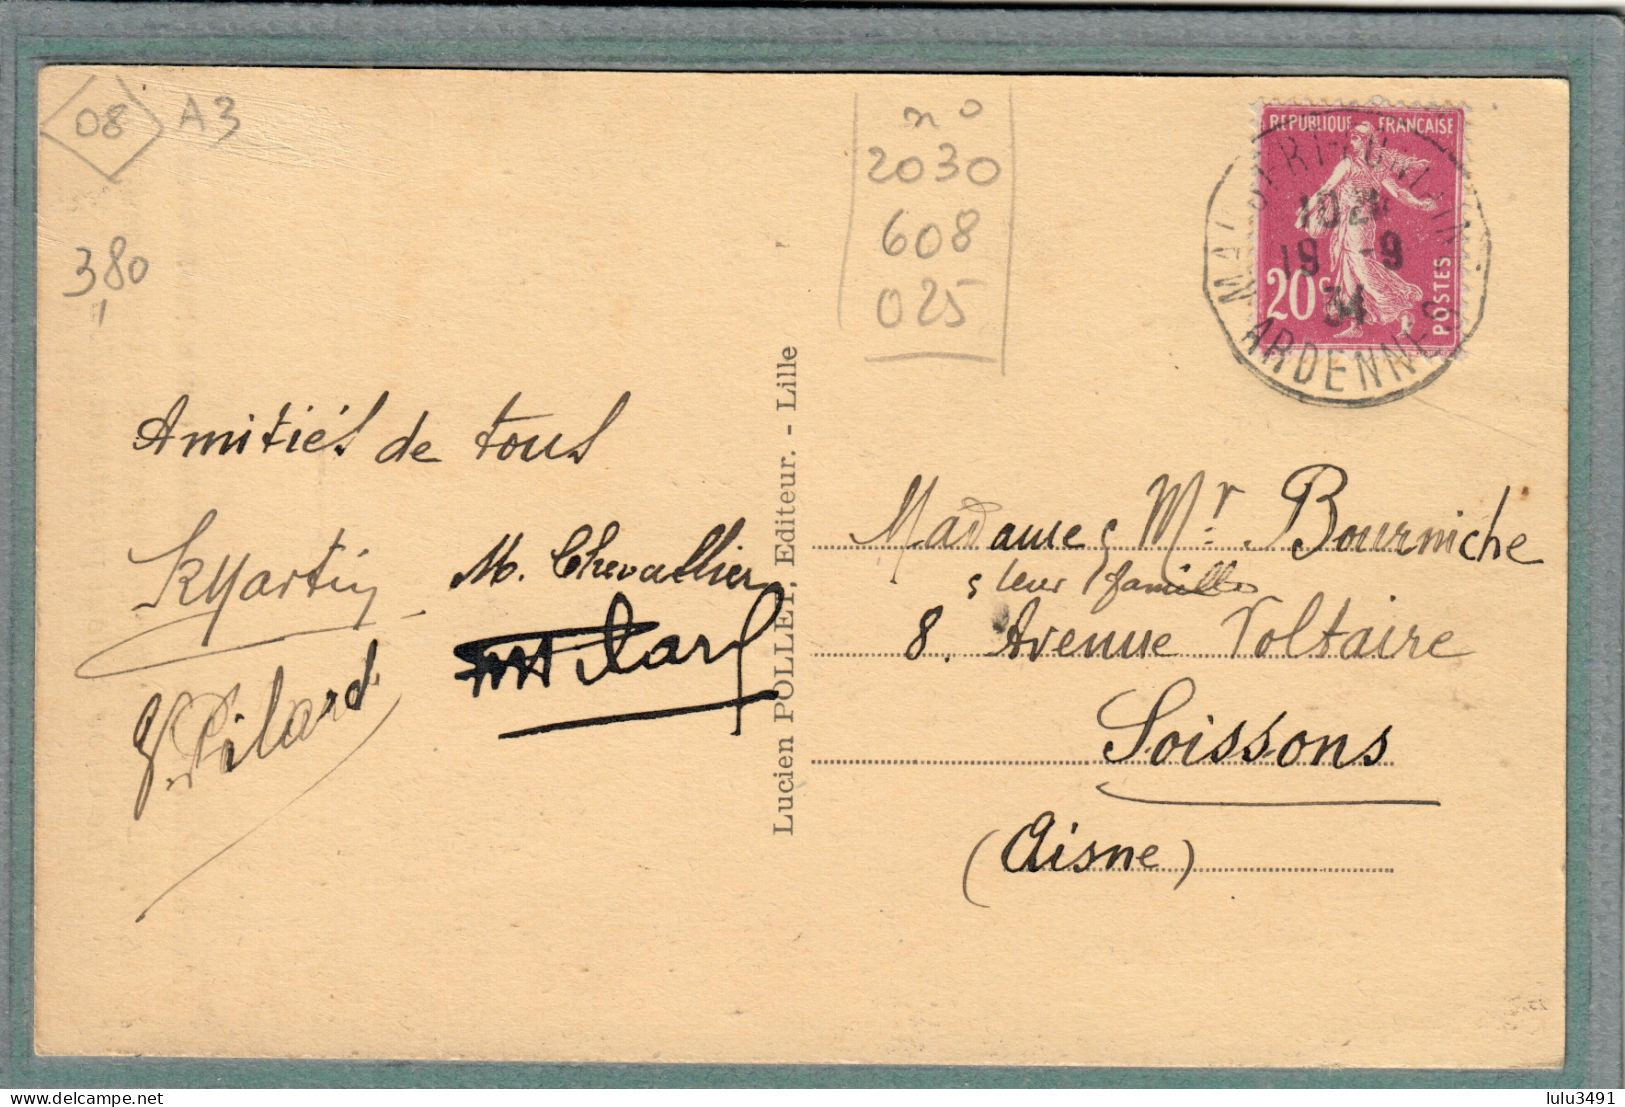 08 A3
380
n°
2030
608
025
REPUBLIQUE FRANÇAISE
20c
POSTES
10 20
19 -9
34
ARDENNES
Amitiés de tous
Martin
M. Chevallier
Pilard
Lucien POLLET, Editeur. - Lille
Madame & Mr. Bourniche
& leur famille
8. Avenue Voltaire
Soissons
(Aisne)
lulu3491